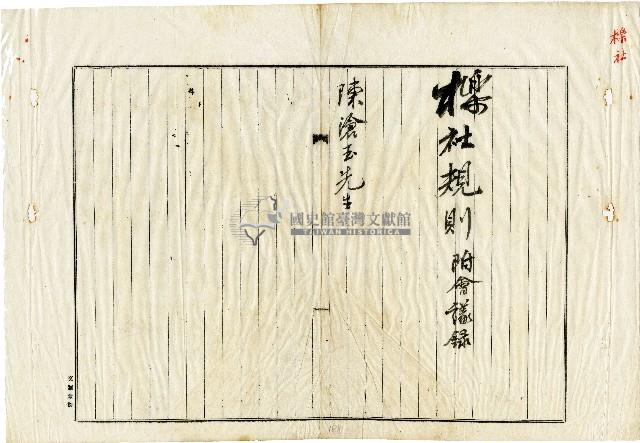 櫟社
櫟社規則 附會議錄
陳滄玉先生
國史館臺灣文獻館
TAIWAN HISTORICA